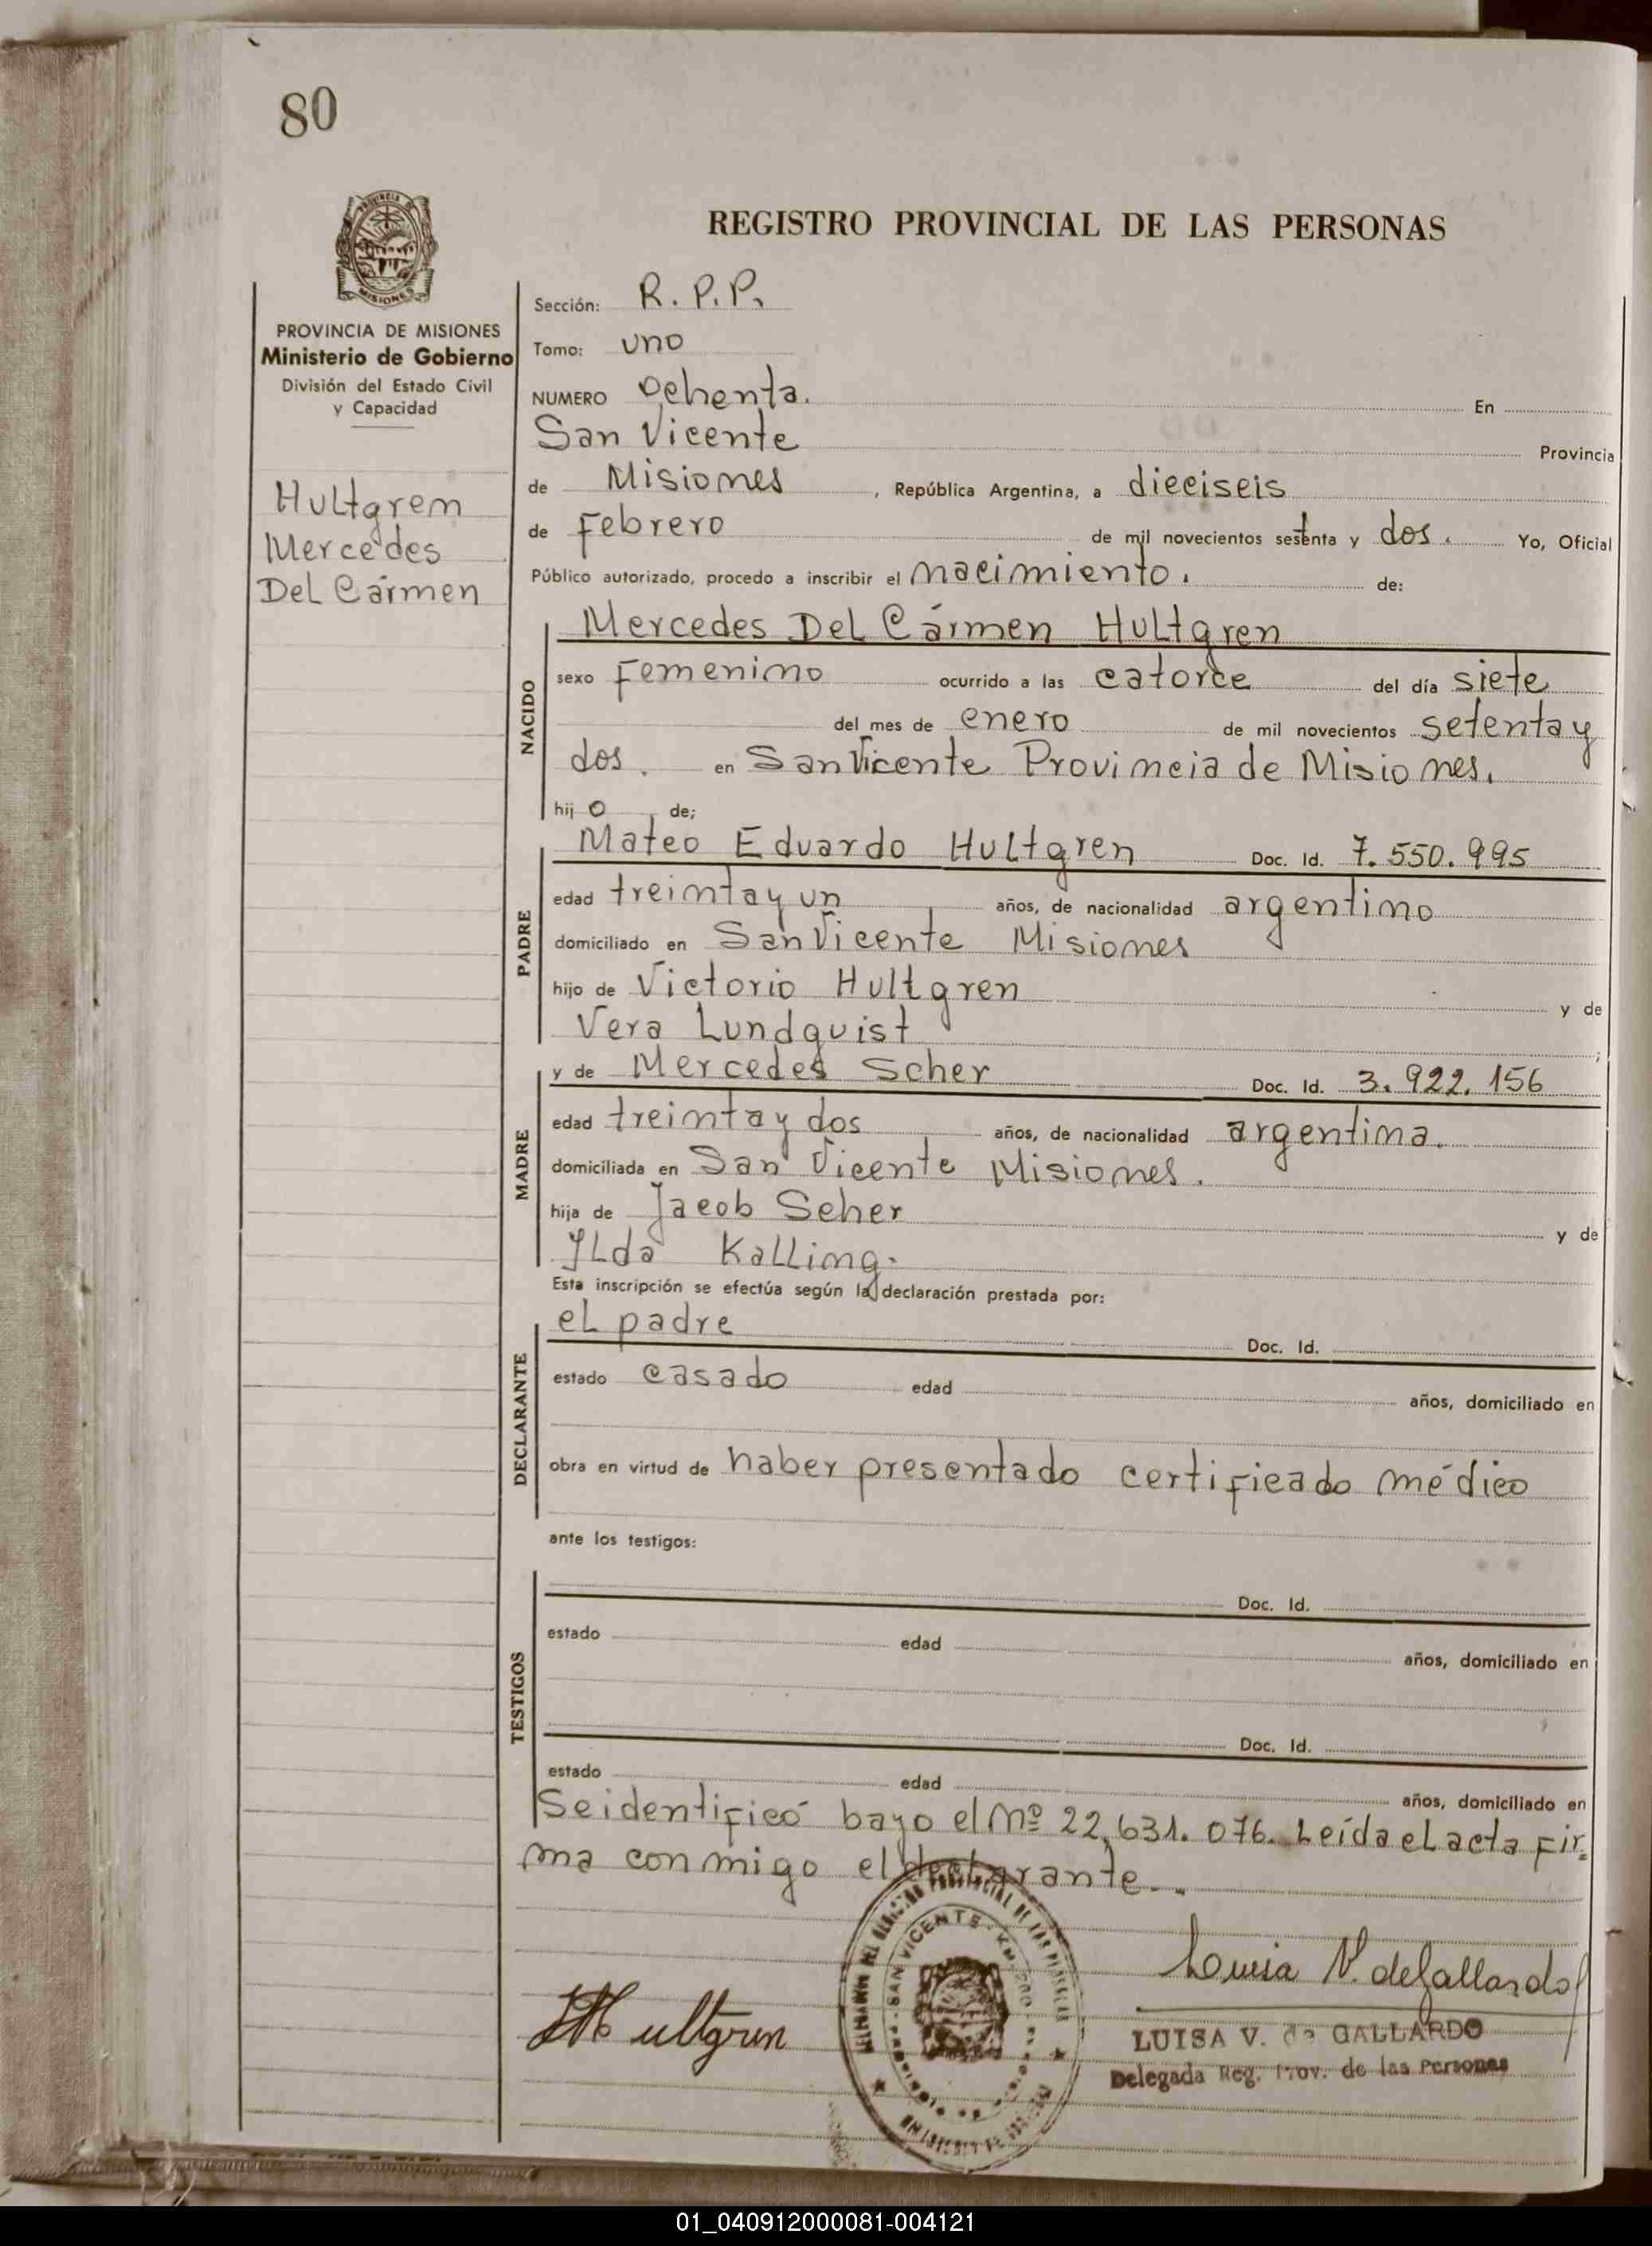 80
REGISTRO PROVINCIAL DE LAS PERSONAS
MISIONES
PROVINCIA DE MISIONES
Ministerio de Gobierno
División del Estado Civil
y Capacidad
Hultgrem
Mercedes
Del Cármen
Sección: R. P. P.
Tomo: uno
NUMERO Ochenta. En
San Vicente Provincia
de Misiones, República Argentina, a dieciseis
de Febrero de mil novecientos setenta y dos. Yo, Oficial
Público autorizado, procedo a inscribir el nacimiento. de:
NACIDO
Mercedes Del Cármen Hultgren
sexo Femenino ocurrido a las catorce del día siete
del mes de enero de mil novecientos setenta y
dos. en San Vicente Provincia de Misiones.
hijo de;
PADRE
Mateo Eduardo Hultgren Doc. Id. 7.550.995
edad treinta y un años, de nacionalidad argentino
domiciliado en San Vicente Misiones
hijo de Victorio Hultgren y de
Vera Lundquist;
MADRE
y de Mercedes Scher Doc. Id. 3.922.156
edad treinta y dos años, de nacionalidad argentina.
domiciliada en San Vicente Misiones.
hija de Jacob Scher y de
Ylda Kalling.
Esta inscripción se efectúa según la declaración prestada por:
DECLARANTE
el padre Doc. Id.
estado casado edad años, domiciliado en
obra en virtud de haber presentado certificado médico
ante los testigos:
TESTIGOS
Doc. Id.
estado edad años, domiciliado en
Doc. Id.
estado edad años, domiciliado en
Se identificó bajo el Nº 22.631.076. Leída el acta fir=
ma conmigo el declarante..
SAN VICENTE
Hultgren
Luisa V. de Gallardo
LUISA V. de GALLARDO
Delegada Reg. Prov. de las Personas
01_040912000081-004121